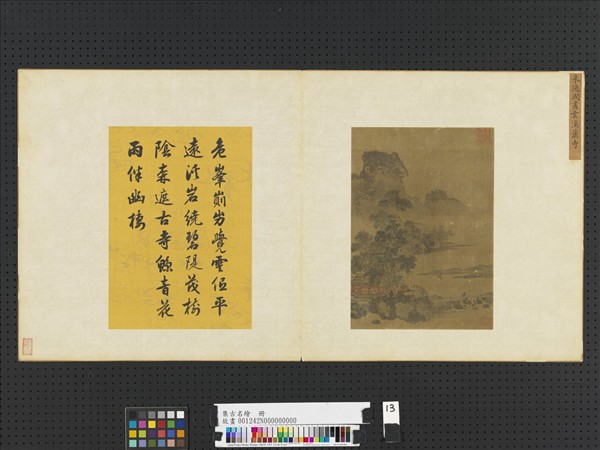 危峯崱屴覺雲低平
遠岩繞碧隄茂樹
陰森遮古寺鯨音花
雨伴幽棲
集古名繪 冊
故畫 001242N000000000
13